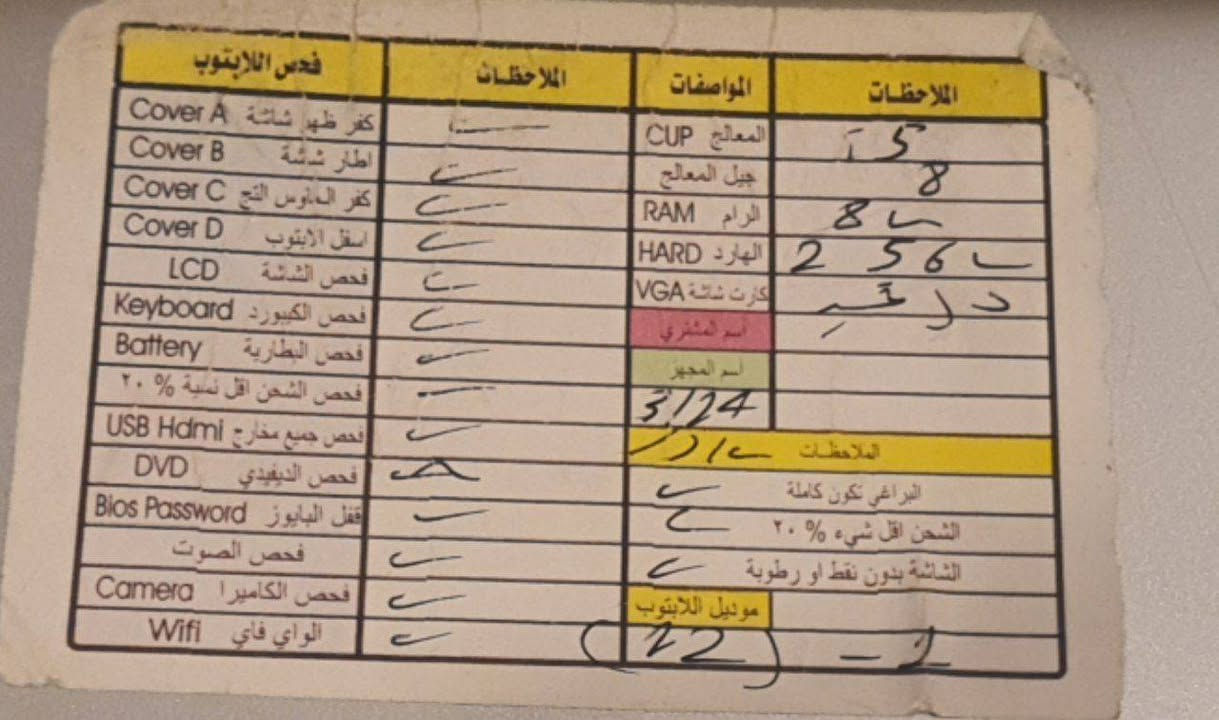 فحص اللابتوب الملاحظات المواصفات الملاحظات
Cover A كفر ظهر شاشة المعالج CUP i5
Cover B اطار شاشة جيل المعالج 8
Cover C كفر الماوس التج الرام RAM 8
Cover D اسفل الابتوب الهارد HARD 256
LCD فحص الشاشة كارت شاشة VGA
Keyboard فحص الكيبورد أسم المشتري
Battery فحص البطارية اسم المجهز
فحص الشحن اقل نسبة % ٢٠ 3/124
USB Hdmi فحص جميع مخارج الملاحظات
DVD فحص الديفيدي البراغي تكون كاملة
Bios Password قفل البايوز الشحن اقل شيء % ٢٠
فحص الصوت الشاشة بدون نقط او رطوبة
Camera فحص الكاميرا موديل اللابتوب
Wifi الواي فاي